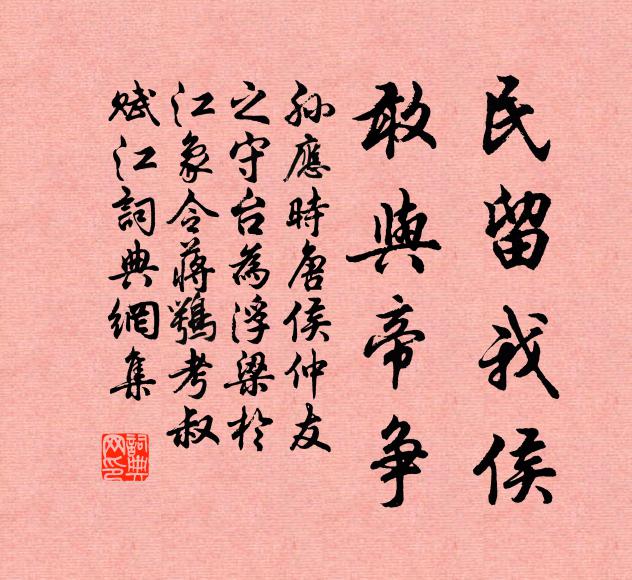 民留我侯
敢與帝争
孙應時唐侯仲友
之守台為浮梁於
江象令蒋鶚考叔
赋江詞典網集
詞典網印